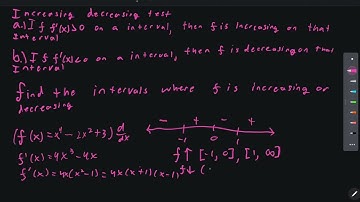 Increasing decreasing test
a.) If f'(x)>0 on a interval, then f is increasing on that
Interval
b.) If f'(x)<0 on a interval, then f is decreasing on that
Interval
find the intervals where f is increasing or
decreasing
(f(x)=x⁴-2x²+3) d/dx
f'(x)=4x³-4x
f'(x)=4x(x²-1)=4x(x+1)(x-1)
- + - +
-1 0 1
f↑ [-1, 0], [1, ∞)
f↓ (-